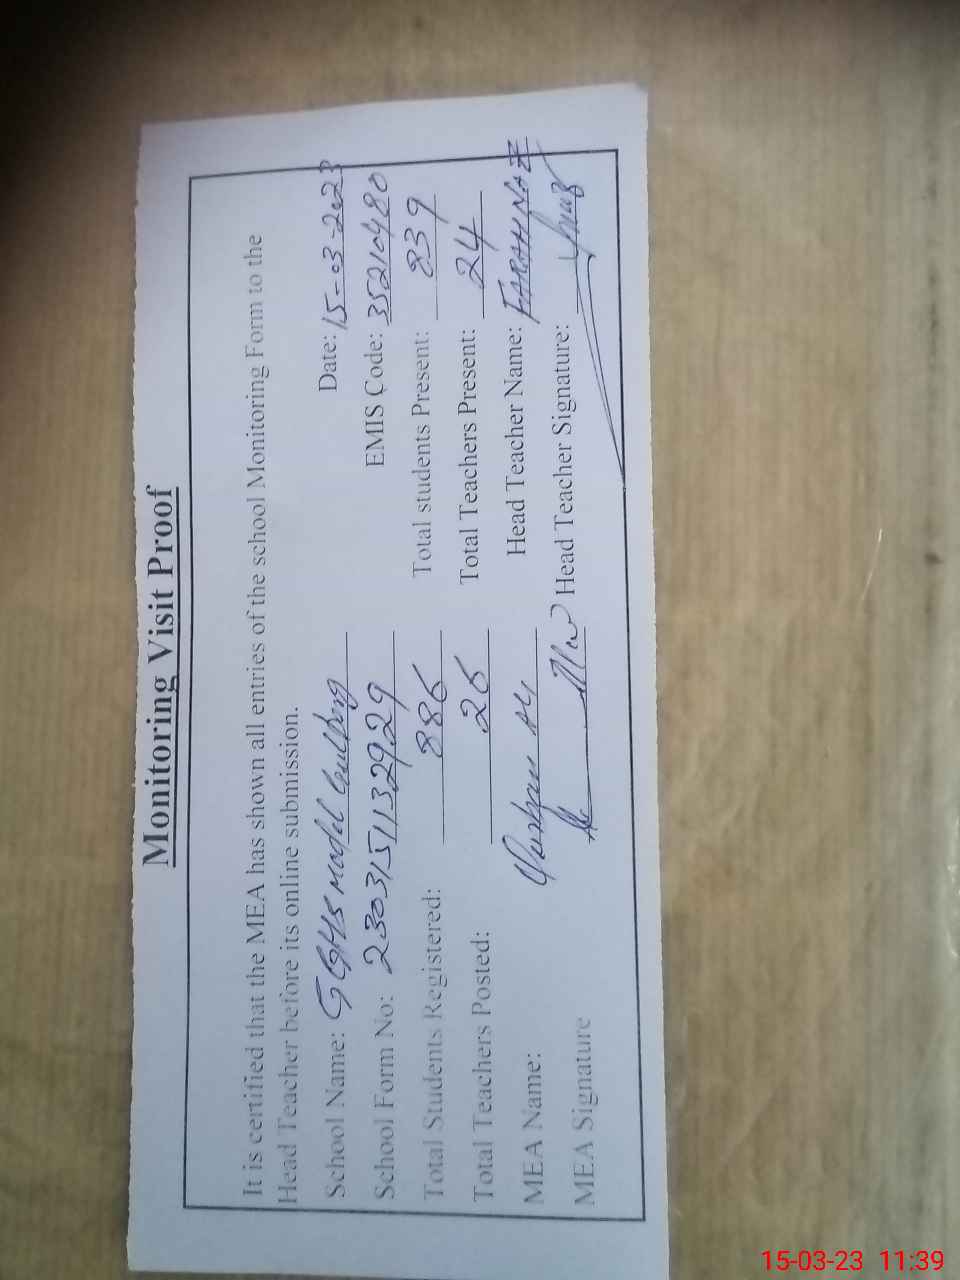 Monitoring Visit Proof
It is certified that the MEA has shown all entries of the school Monitoring Form to the
Head Teacher before its online submission.
School Name: GGHS Model Gulberg Date: 15-03-2023
School Form No: 230315113292 9 EMIS Code: 35210480
Total Students Registered: 886 Total students Present: 839
Total Teachers Posted: 26 Total Teachers Present: 24
MEA Name: Head Teacher Name: FARAH NAZ
MEA Signature Head Teacher Signature:
15-03-23 11:39